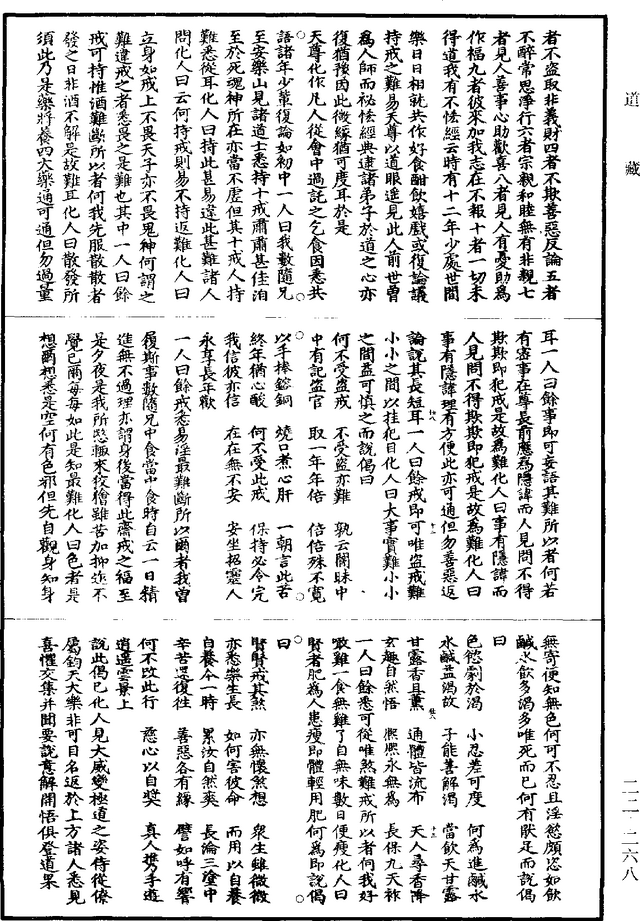 道藏
者不盜取非義財四者不欺善惡反論五者
不醉常思淨行六者宗親和睦無有非親七
者見人善事心助歡喜八者見人有憂助為
作福九者彼來加我志在不報十者一切未
得道我有不恡經云時有十二年少處世間
樂日日相就共作好食酣飲嬉戲或復論議
持戒之難易天尊以道眼遙見此人前世曾
為人師而祕恡經典建諸弟子於道之心亦
復猶豫因此微緣猶可度耳於是
天尊化作凡人從會中過託之乞食因悉共
語諸年少輩復論如初中一人曰我數隨兄
至安樂山見諸道士悉持十戒肅肅甚佳洎
至於死魂神所在亦當不虛但其十戒人持
難悉從耳化人曰持此甚易違此甚難諸人
問化人曰云何持戒則易不持返難化人曰
立身如戒上不畏天子亦不畏鬼神何謂之
難違戒之者悉畏之是難也其中一人曰餘
戒可持惟酒難斷所以者何我先服散散者
發之日非酒不解是故難耳化人曰散發所
須此乃是藥將養四大藥通可通但勿過量
耳一人曰餘事即可妄語其難所以者何若
有密事在尊長前應為隱諱而人見問不得
欺欺即犯戒是故為難化人曰事有隱諱而
人見問不得欺欺即犯戒是故為難化人曰
事有隱諱理有方便此亦可通但勿善惡返
論說其長短耳一人曰餘戒即可唯盜戒難
小小之間以挂犯目化人曰大事實難小小
之間益可慎之而說偈曰
何不受盜戒 不受盜亦難 孰云闇昧中
中有記盜官 取一年年倍 倍倍殊不寬
以手捧鎔銅 燒口煮心肝 一朝言此苦
終年猶心酸 何不受此戒 保持必令完
我信彼亦信 在在無不安 安坐招靈人
永享長年歡
一人曰餘戒悉易淫最難斷所以爾者我曾
履斯事數隨兄中食當中食時自云一日精
進無不過理亦謂身後當得此齋戒之福至
是夕夜是我所愁輒來狡獪雖苦加抑迮不
覺已爾每每如此是知最難化人曰色者是
想爾想悉是空何有色邪但先自觀身知身
無寄便知無色何可不忍且淫慾頗恣如飲
鹹水飲多渴多唯死而已何有厭足而說偈
曰
色慾劇於渴 小忍差可度 何為進鹹水
水鹹益渴故 子能善解渴 當飲天甘露
甘露香且薰 通體皆流布 天人尋香降
玄趣自然悟 熙熙永無為 長保九天祚
一人曰餘悉可從唯煞難戒所以者何我好
噉雞一食無雞了自無味數日便瘦化人曰
賢者肥為人患瘦即體輕用肥何為即說偈
曰
賢賢戒其煞 亦無懷煞想 眾生雖微微
亦悉樂生長 如何害彼命 而用以自養
自養今一時 累汝自然喪 長淪三塗中
辛苦還復往 善惡各有緣 譬如呼有響
何不改此行 慈心以自獎 真人攜手遊
逍遙雲景上
說此偈已化人見大威變極道之姿侍從僚
屬鈞天大樂非可目名返於上方諸人悉見
喜懼交集并聞要說意解開悟俱登道果
二二—二六八